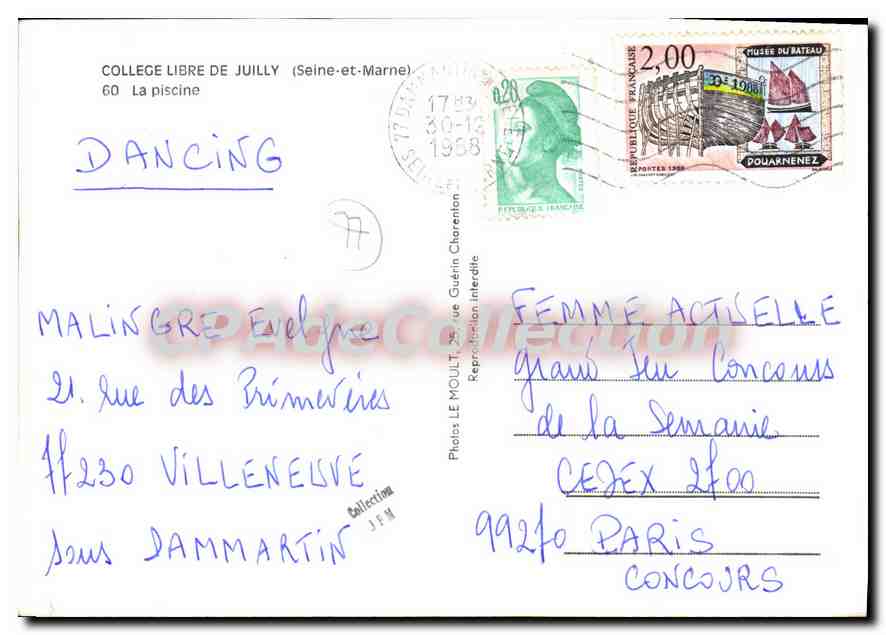 COLLEGE LIBRE DE JUILLY (Seine-et-Marne)
60 La piscine
DANCING
77
MALINGRE Evelyne
21. rue des Primevères
77230 VILLENEUVE
sous DAMMARTIN
Collection
JFM
Photos LE MOULT, 25, rue Guérin Charenton
Reproduction interdite
17H3
30-12
1988
0,20
REPUBLIQUE FRANÇAISE
2,00
REPUBLIQUE FRANÇAISE
MUSÉE DU BATEAU
1988
DOUARNENEZ
POSTES 1988
FEMME ACTUELLE
grand Jeu Concours
de la Semaine
CEDEX 2700
99270 PARIS
CONCOURS
CPAdeCollection